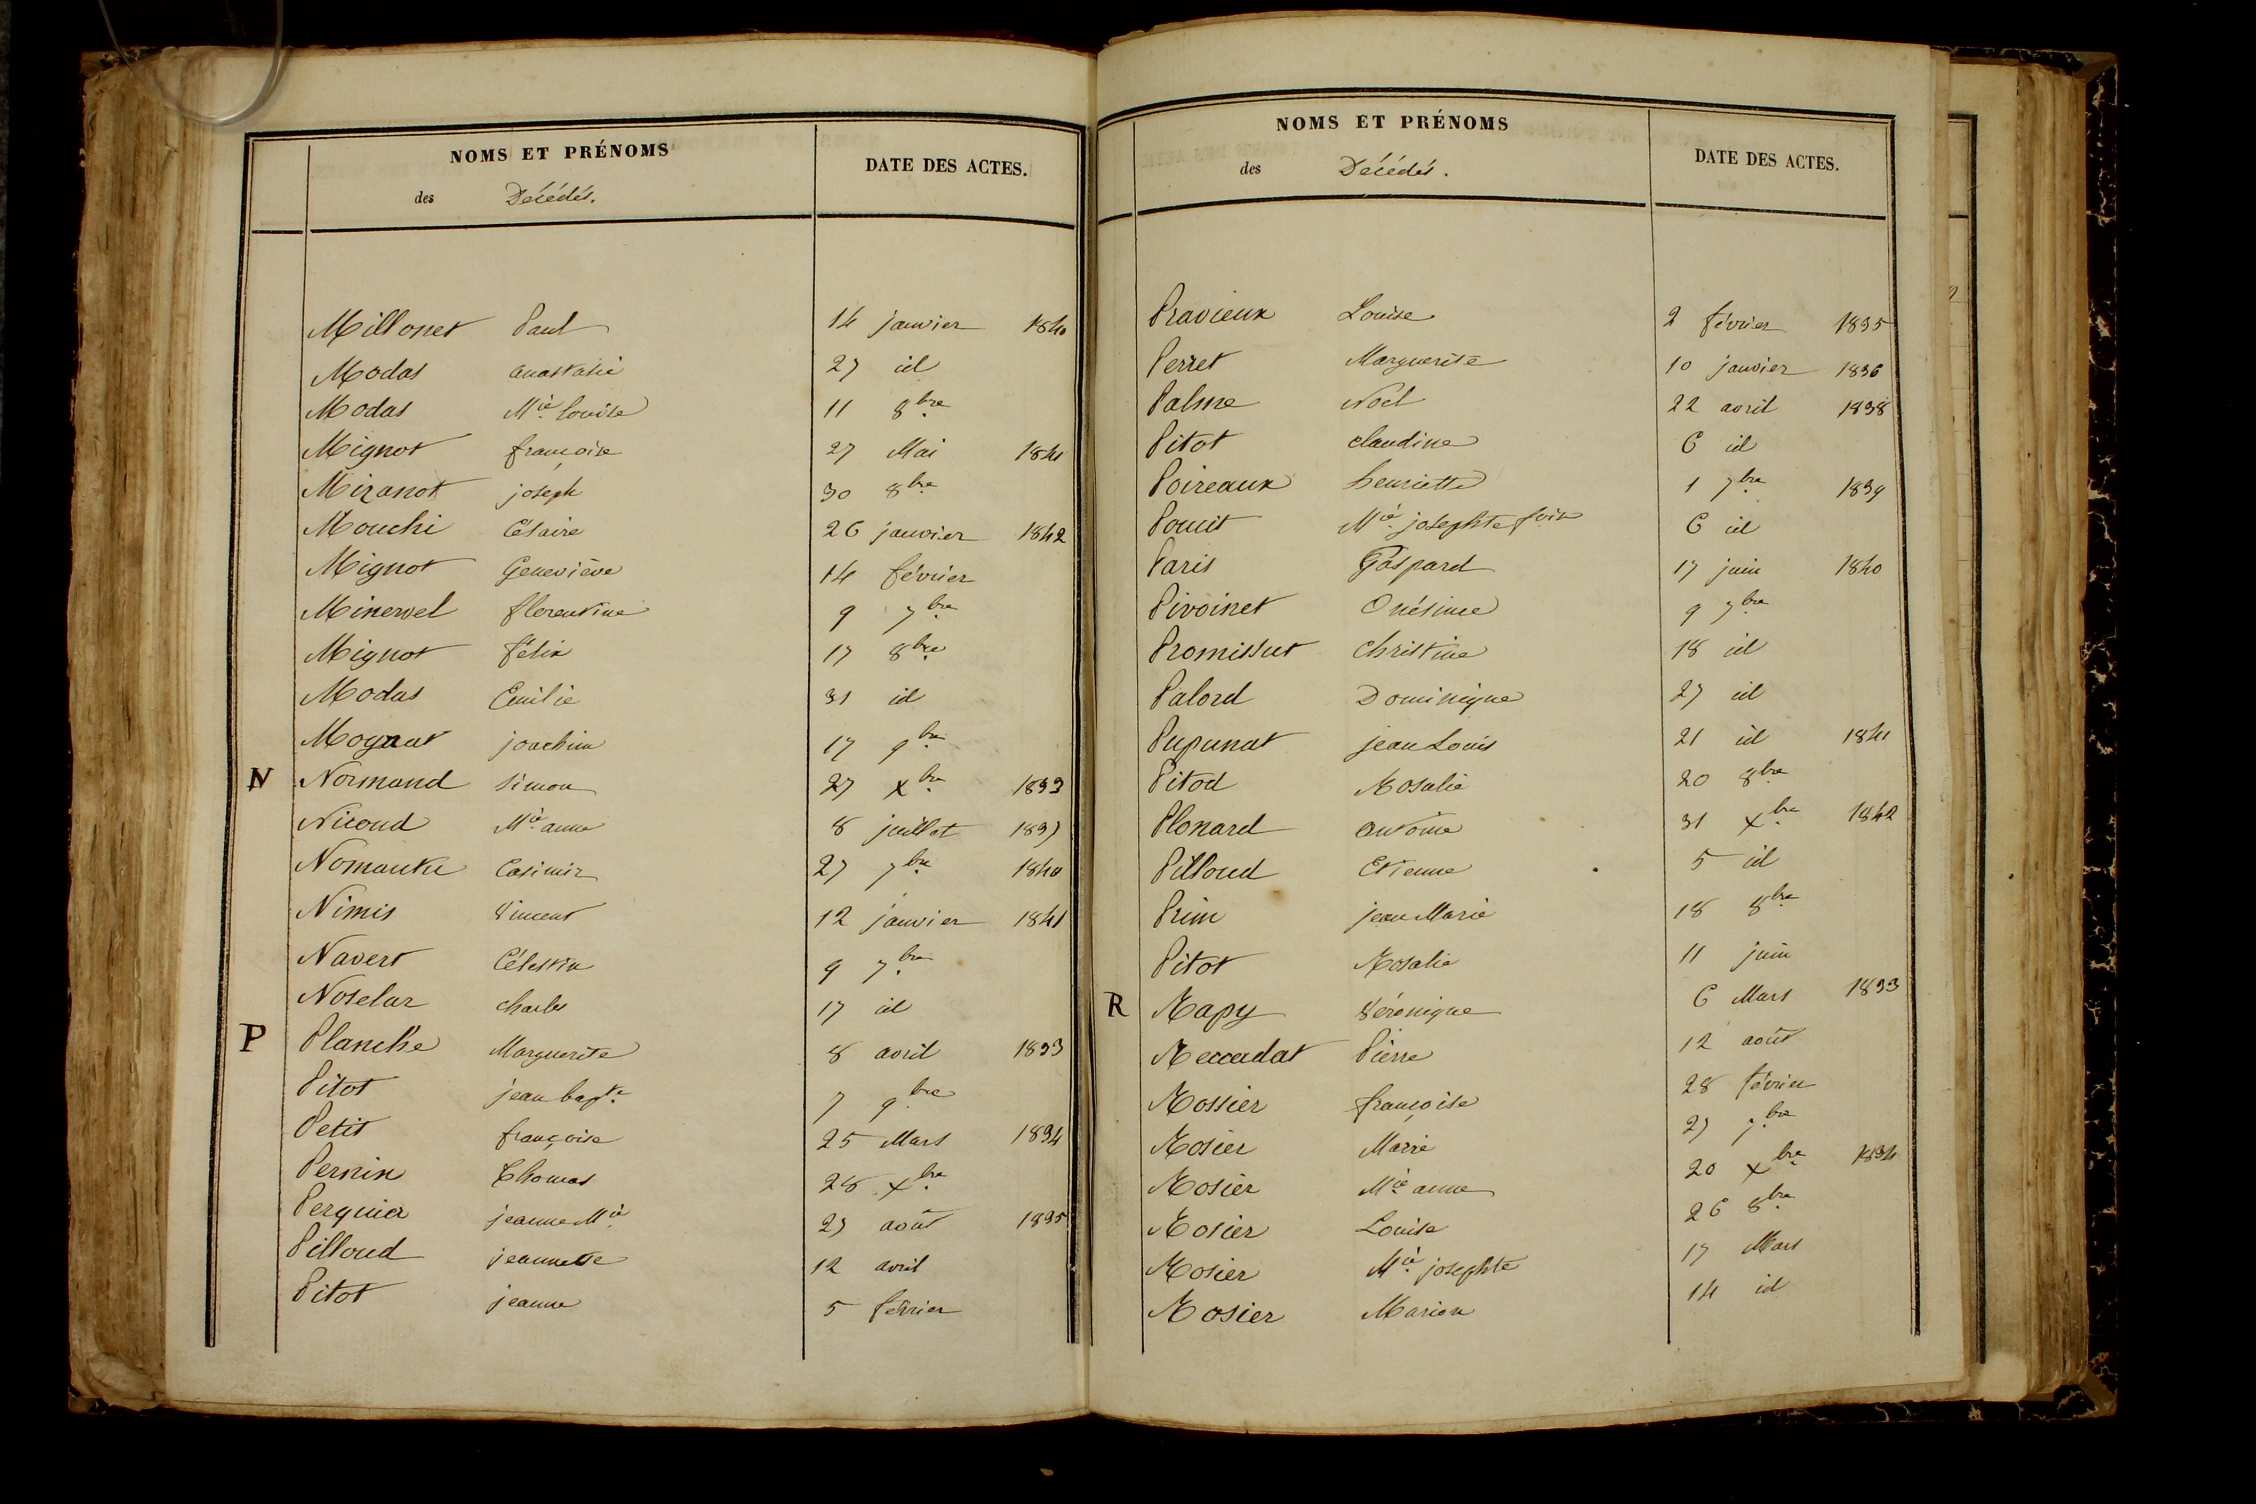 NOMS ET PRÉNOMS
des Décédés.
DATE DES ACTES.
Millonet Paul 14 janvier 1840
Modas anastasie 27 id
Modas Mie. Louise 11 8bre
Mignot françoise 27 Mai 1841
Miranot joseph 30 8bre
Mouchi Césaire 26 janvier 1842
Mignot Geneviève 14 février
Minerwel florentine 9 7bre
Mignot félix 17 8bre
Modas Emilie 31 id
Moynat joachim 17 9bre
N Normand simon 27 xbre 1833
Nicoud Mie. anne 8 juillet 1837
Casimir 27 7bre 1840
Nimis Vincent 12 janvier 1841
Navert Célestin 9 7bre
Noselar charles 17 id
P Planche Marguerite 8 avril 1833
Pitot jean bapte. 7 9bre
Petit françoise 25 Mars 1834
Pernin Thomas 28 xbre
Perquier jeanne Mie 27 août 1835
Pilloud jeannette 12 avril
Pitot jeanne 5 février
NOMS ET PRÉNOMS
des Décédés.
DATE DES ACTES.
Pravieux Louise 2 février 1835
Perret Marguerite 10 janvier 1836
Palme Noël 22 avril 1838
Pitot claudine 6 id
Poireaux henriette 1 7bre 1839
Mie. josephte 6 id
Paris Gaspard 17 juin 1840
Pivoinet Onésime 9 7bre
Promissut Christine 18 id
Palord Dominique 27 id
Pupunat jean Louis 21 id 1841
Pitod Rosalie 20 8bre
Plonard antoine 31 xbre 1842
Pilloud Etienne 5 id
Prim jean Marie 18 8bre
Pitot Rosalie 11 juin
R Rapy Véronique 6 Mars 1833
Reccadat Pierre 12 août
Rossier françoise 28 février
Rosier Marie 27 7bre
Rosier Mie. anne 20 xbre 1834
Rosier Louise 26 8bre
Rosier Mie. josephte 17 Mars
Rosier Marion 14 id